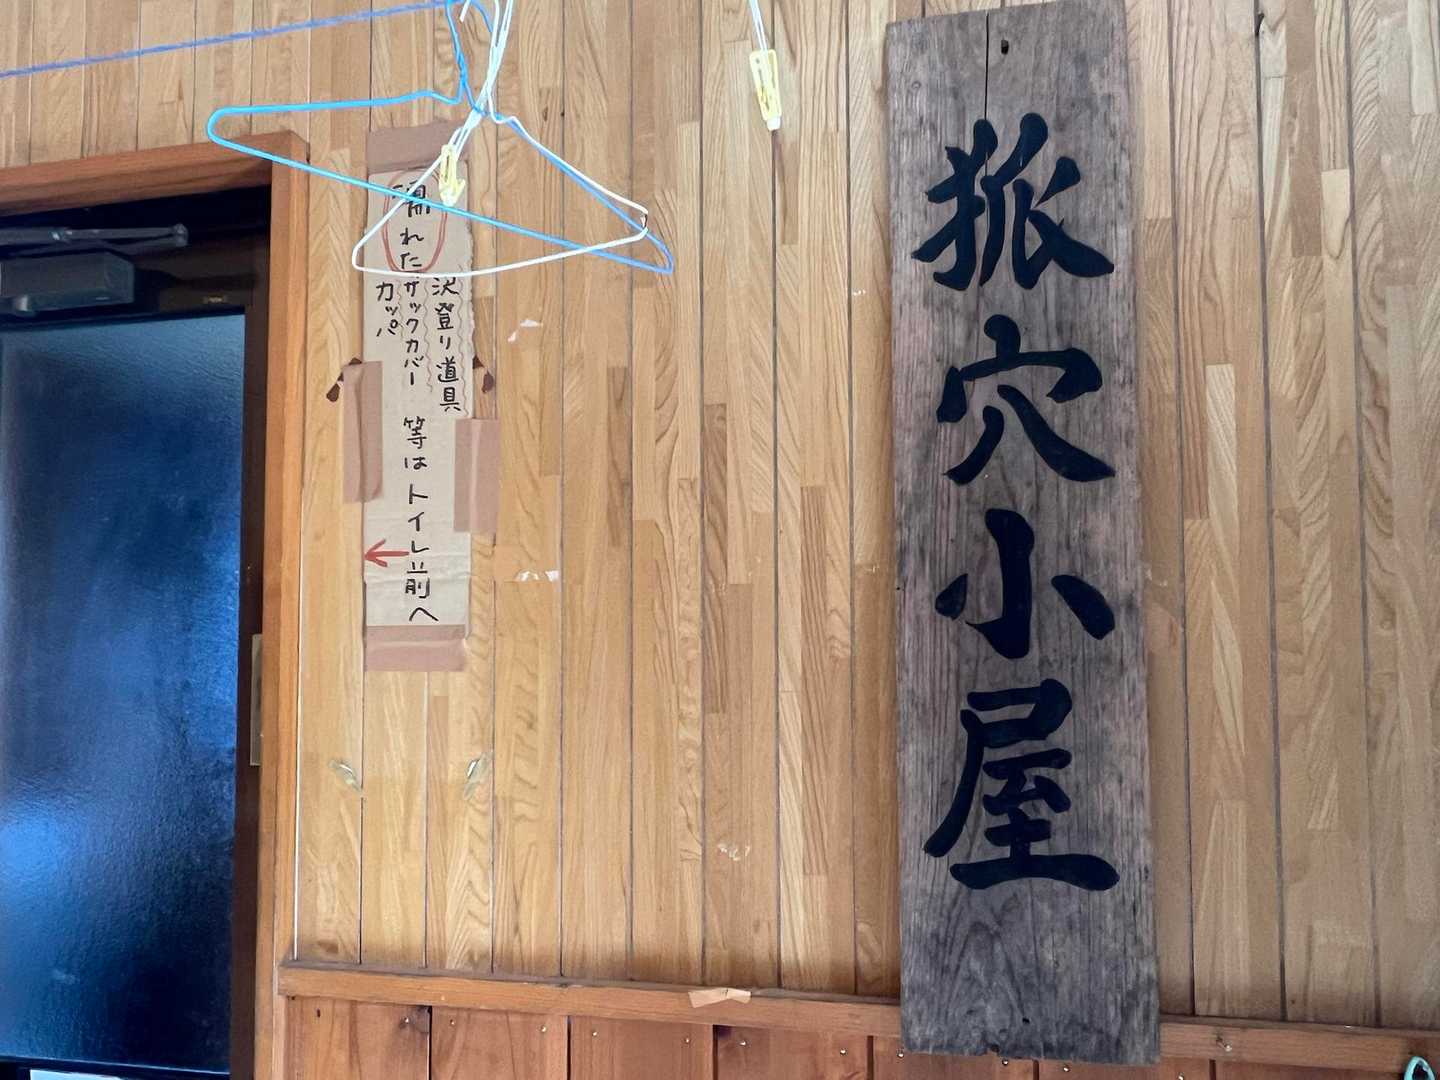 狐穴小屋
沢登り道具
濡れたザックカバー 等はトイレ前へ
カッパ